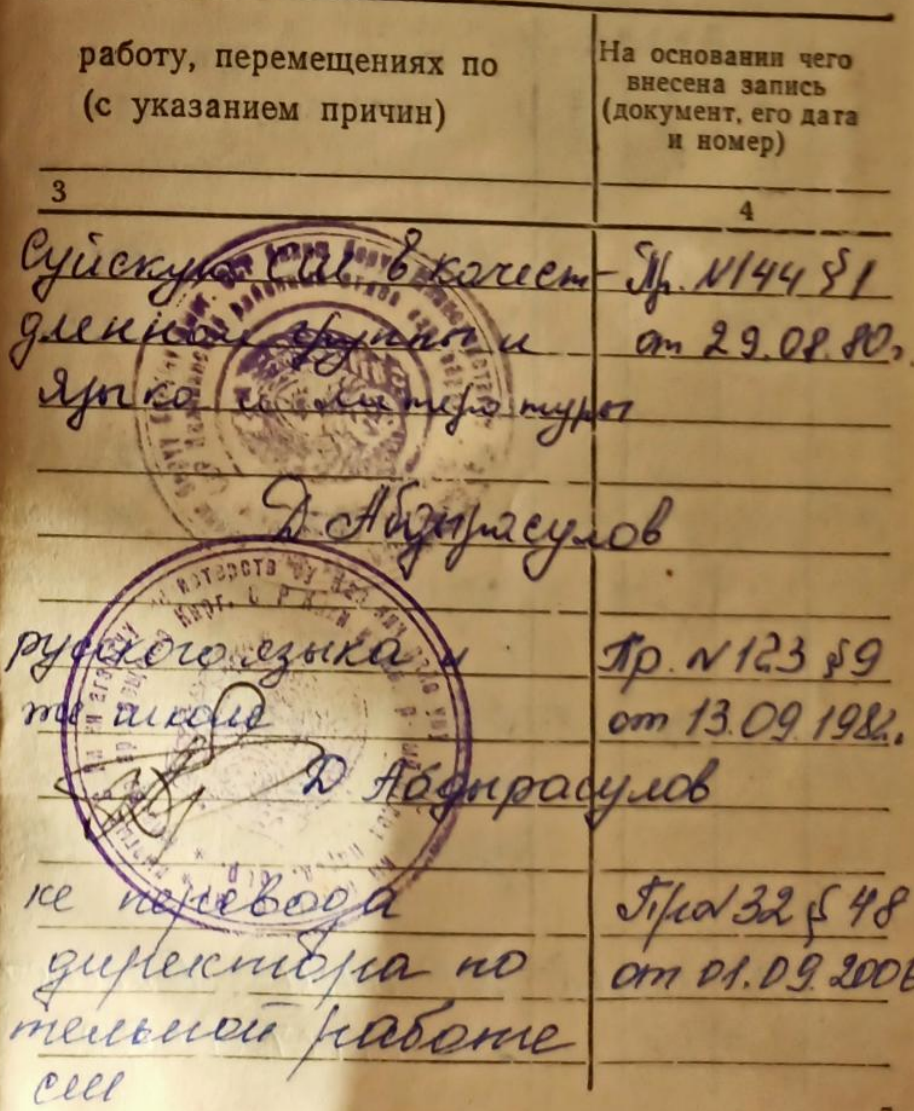 работу, перемещениях по
(с указанием причин)
На основании чего
внесена запись
(документ, его дата
и номер)
3
4
Суйскую СШ в качест-
Пр. №144 §1
дленной группы и
от 29.08.80г
языка и литературы
Д Абдырасулов
русского языка и
Пр. №123 §9
же школе
от 13.09.1982г.
Д Абдырасулов
ке перевода
Пр №32 § 48
директора по
от 01.09.200
тельной работе
СШ